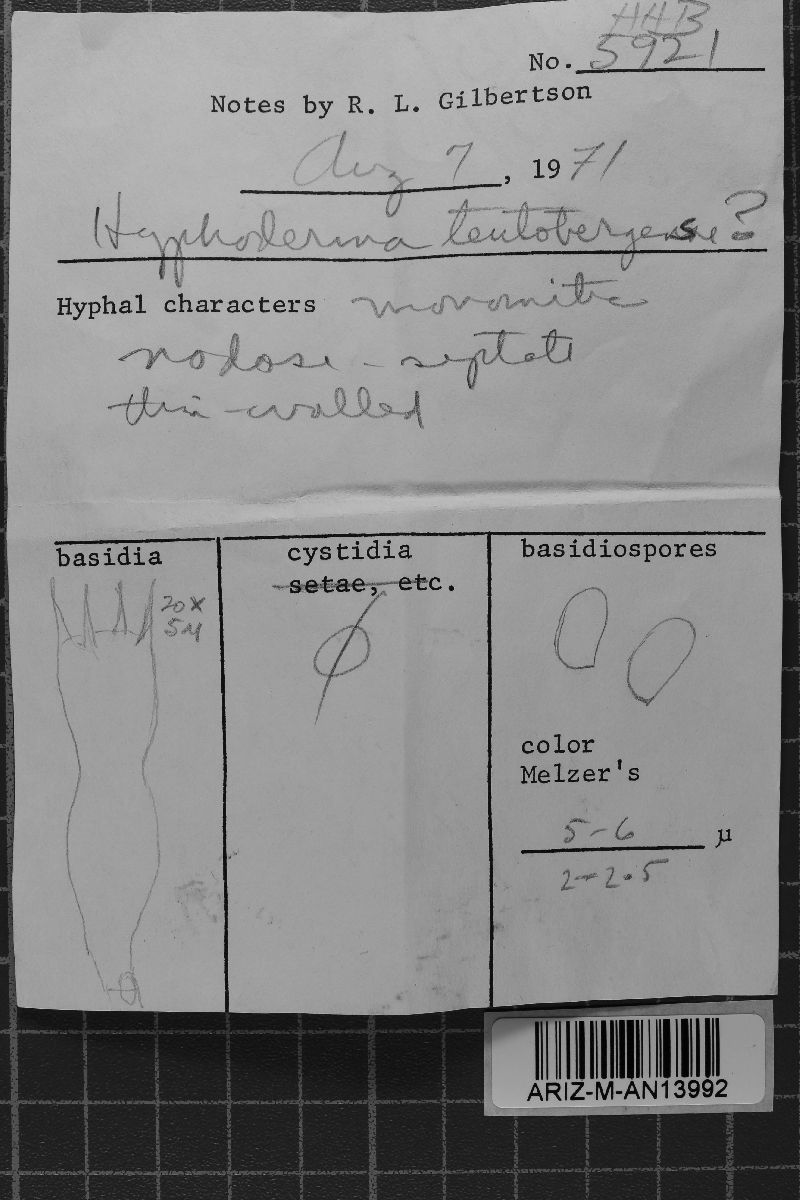 HHB
No. 5921
Notes by R. L. Gilbertson
Aug 7, 1971
Hyphoderma teutobergense?
Hyphal characters monomitic
nodose-septate
thin-walled
basidia
20 x
5 µ
cystidia
setae, etc.
basidiospores
color
Melzer's
5-6 µ
2-2.5
ARIZ-M-AN13992